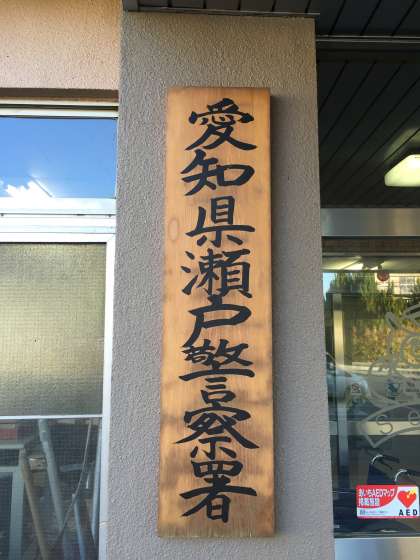 愛知県瀬戸警察署
あいちAEDマップ
掲載施設
AED